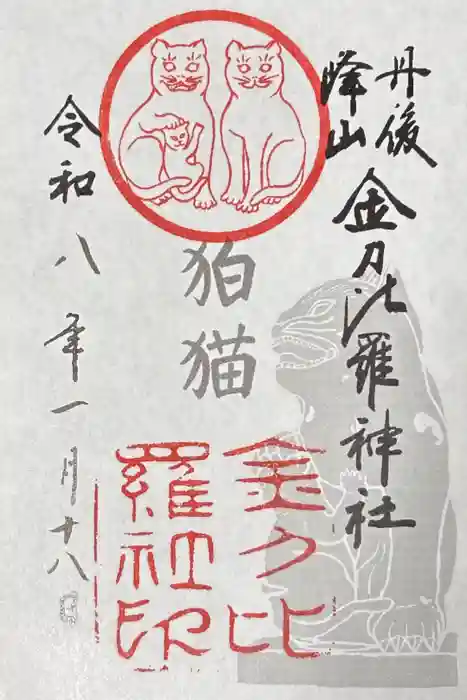 丹後
峰山
金刀比羅神社
狛猫
金刀比
羅社
印
令和八年一月十八日